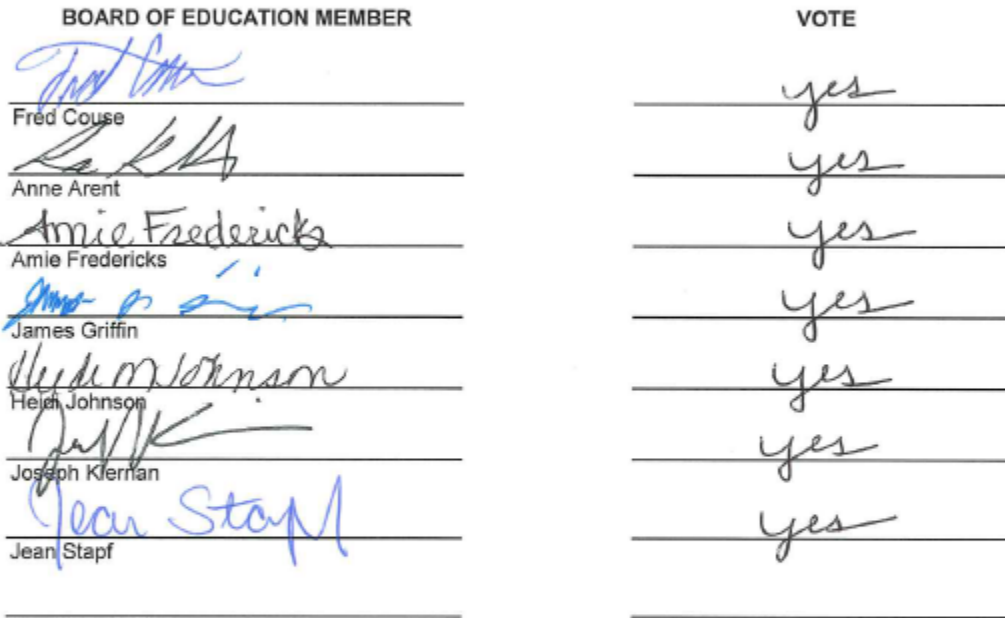 BOARD OF EDUCATION MEMBER VOTE
Fred Couse yes
Fred Couse
yes
Anne Arent
Amie Fredericks yes
Amie Fredericks
yes
James Griffin
Heidi M Johnson yes
Heidi Johnson
yes
Joseph Kiernan
Jean Stapf yes
Jean Stapf